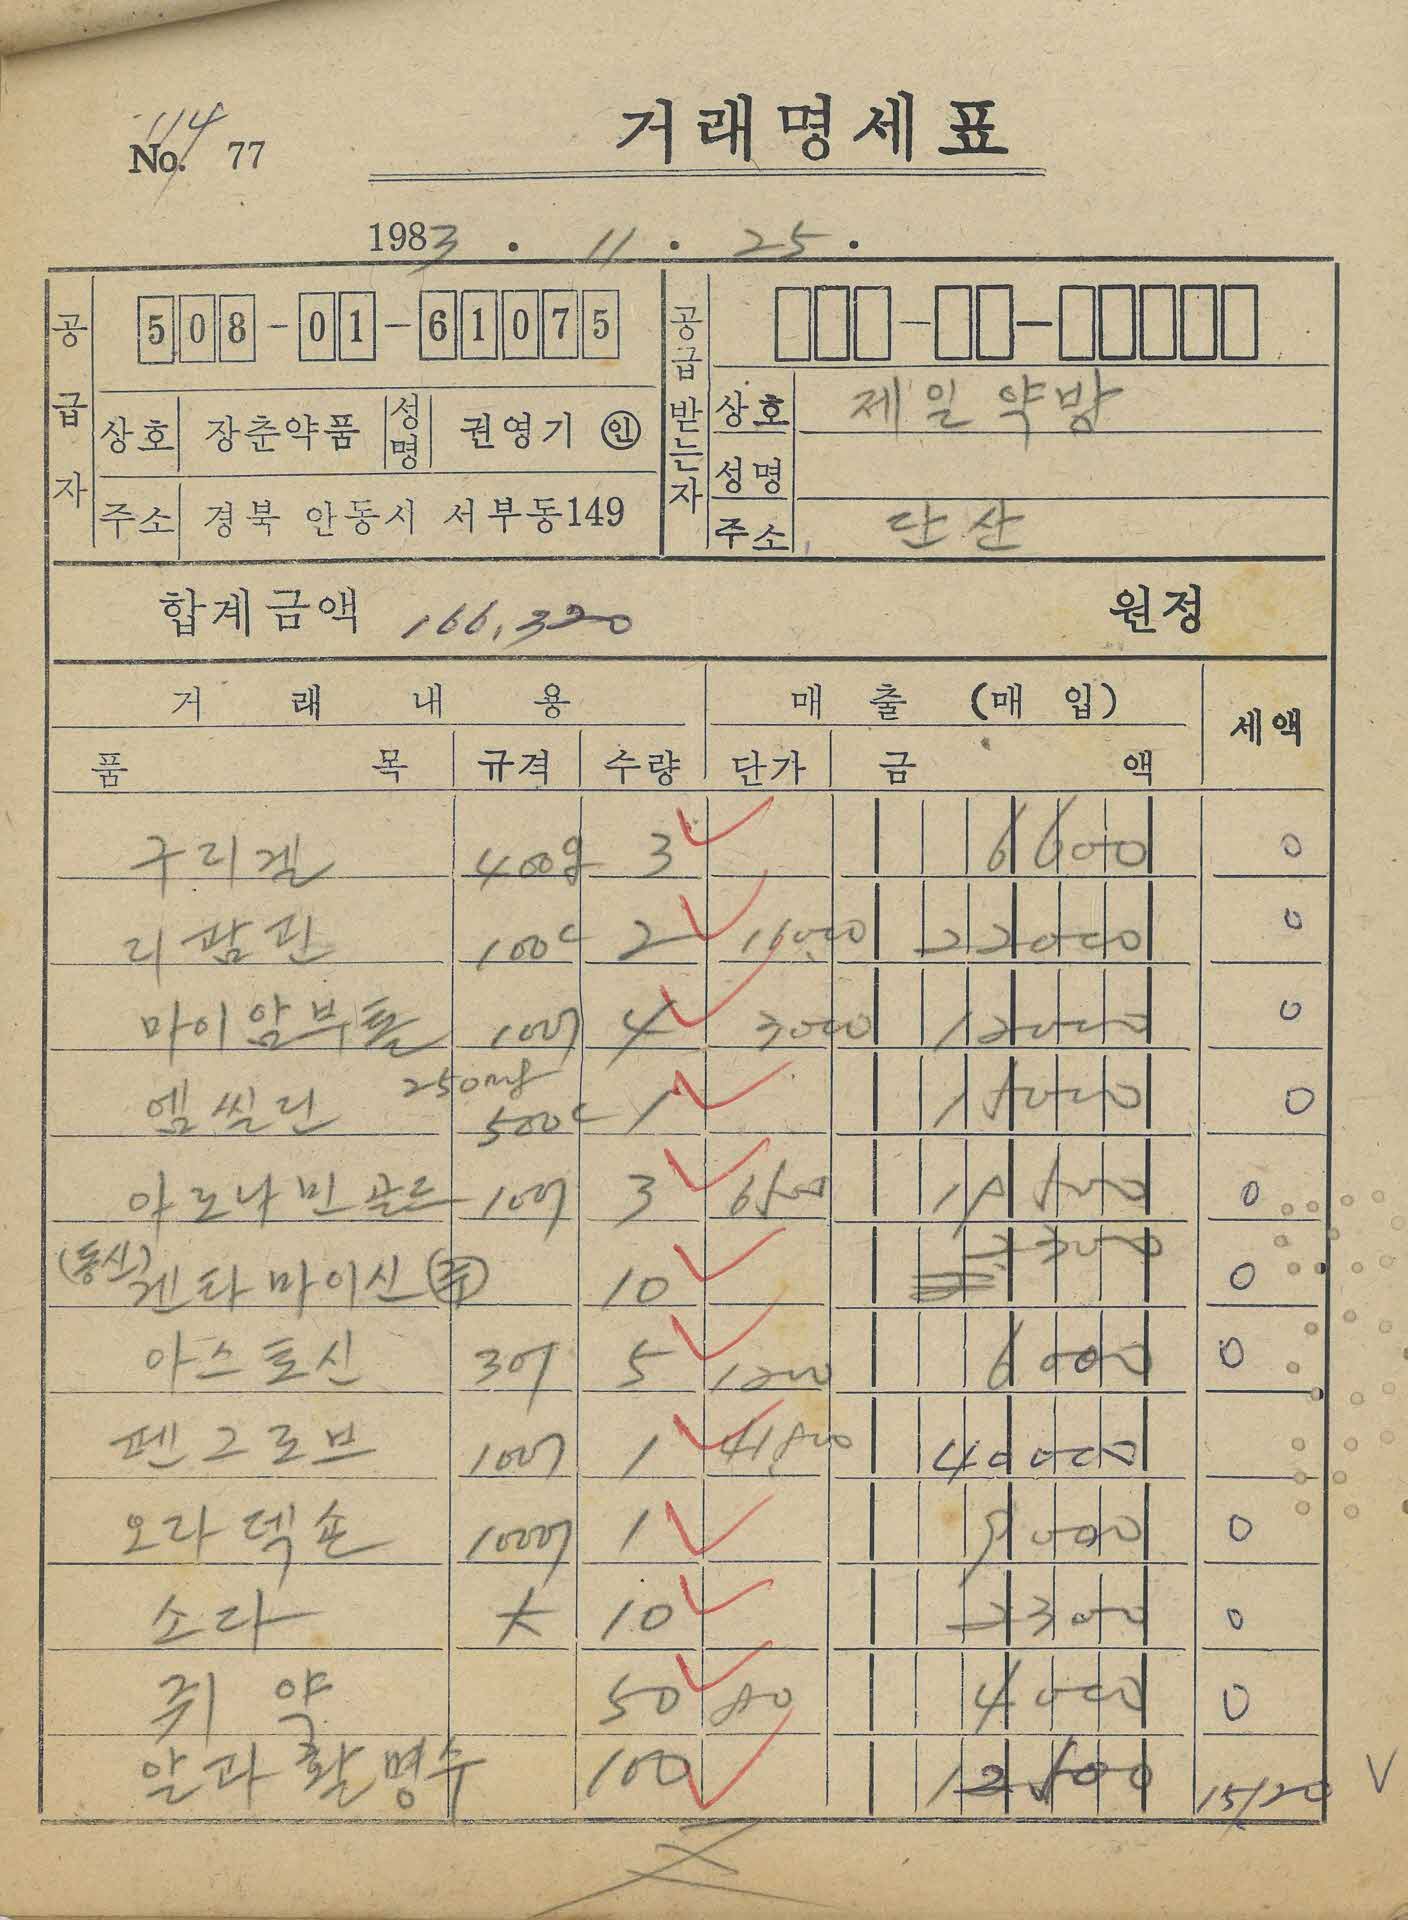 114
No. 77
거래명세표
1983 . 11 . 25 .
공급자
508-01-61075
상호 장춘약품 성명 권영기 ㊞
주소 경북 안동시 서부동149
공급받는자
상호 제일약방
성명
주소 단산
합계금액 166,320 원정
거래내용 매출(매입) 세액
품목 규격 수량 단가 금액
구리겔 400g 3 6600 0
리팜핀 100c 2 11000 22000 0
마이암부톨 100T 4 3000 12000 0
엠씰린 250mg 500c 1 18000 0
아로나민골드 100T 3 6500 19500 0
(동신) 겐타마이신 (주) 10 0
아스토신 3T 5 1200 6000 0
펜그로브 100T 1 40000
오라덱손 1000T 1 9000 0
소다 大 10 2300 0
쥐약 50 80 4000 0
알과활명수 100 1
V